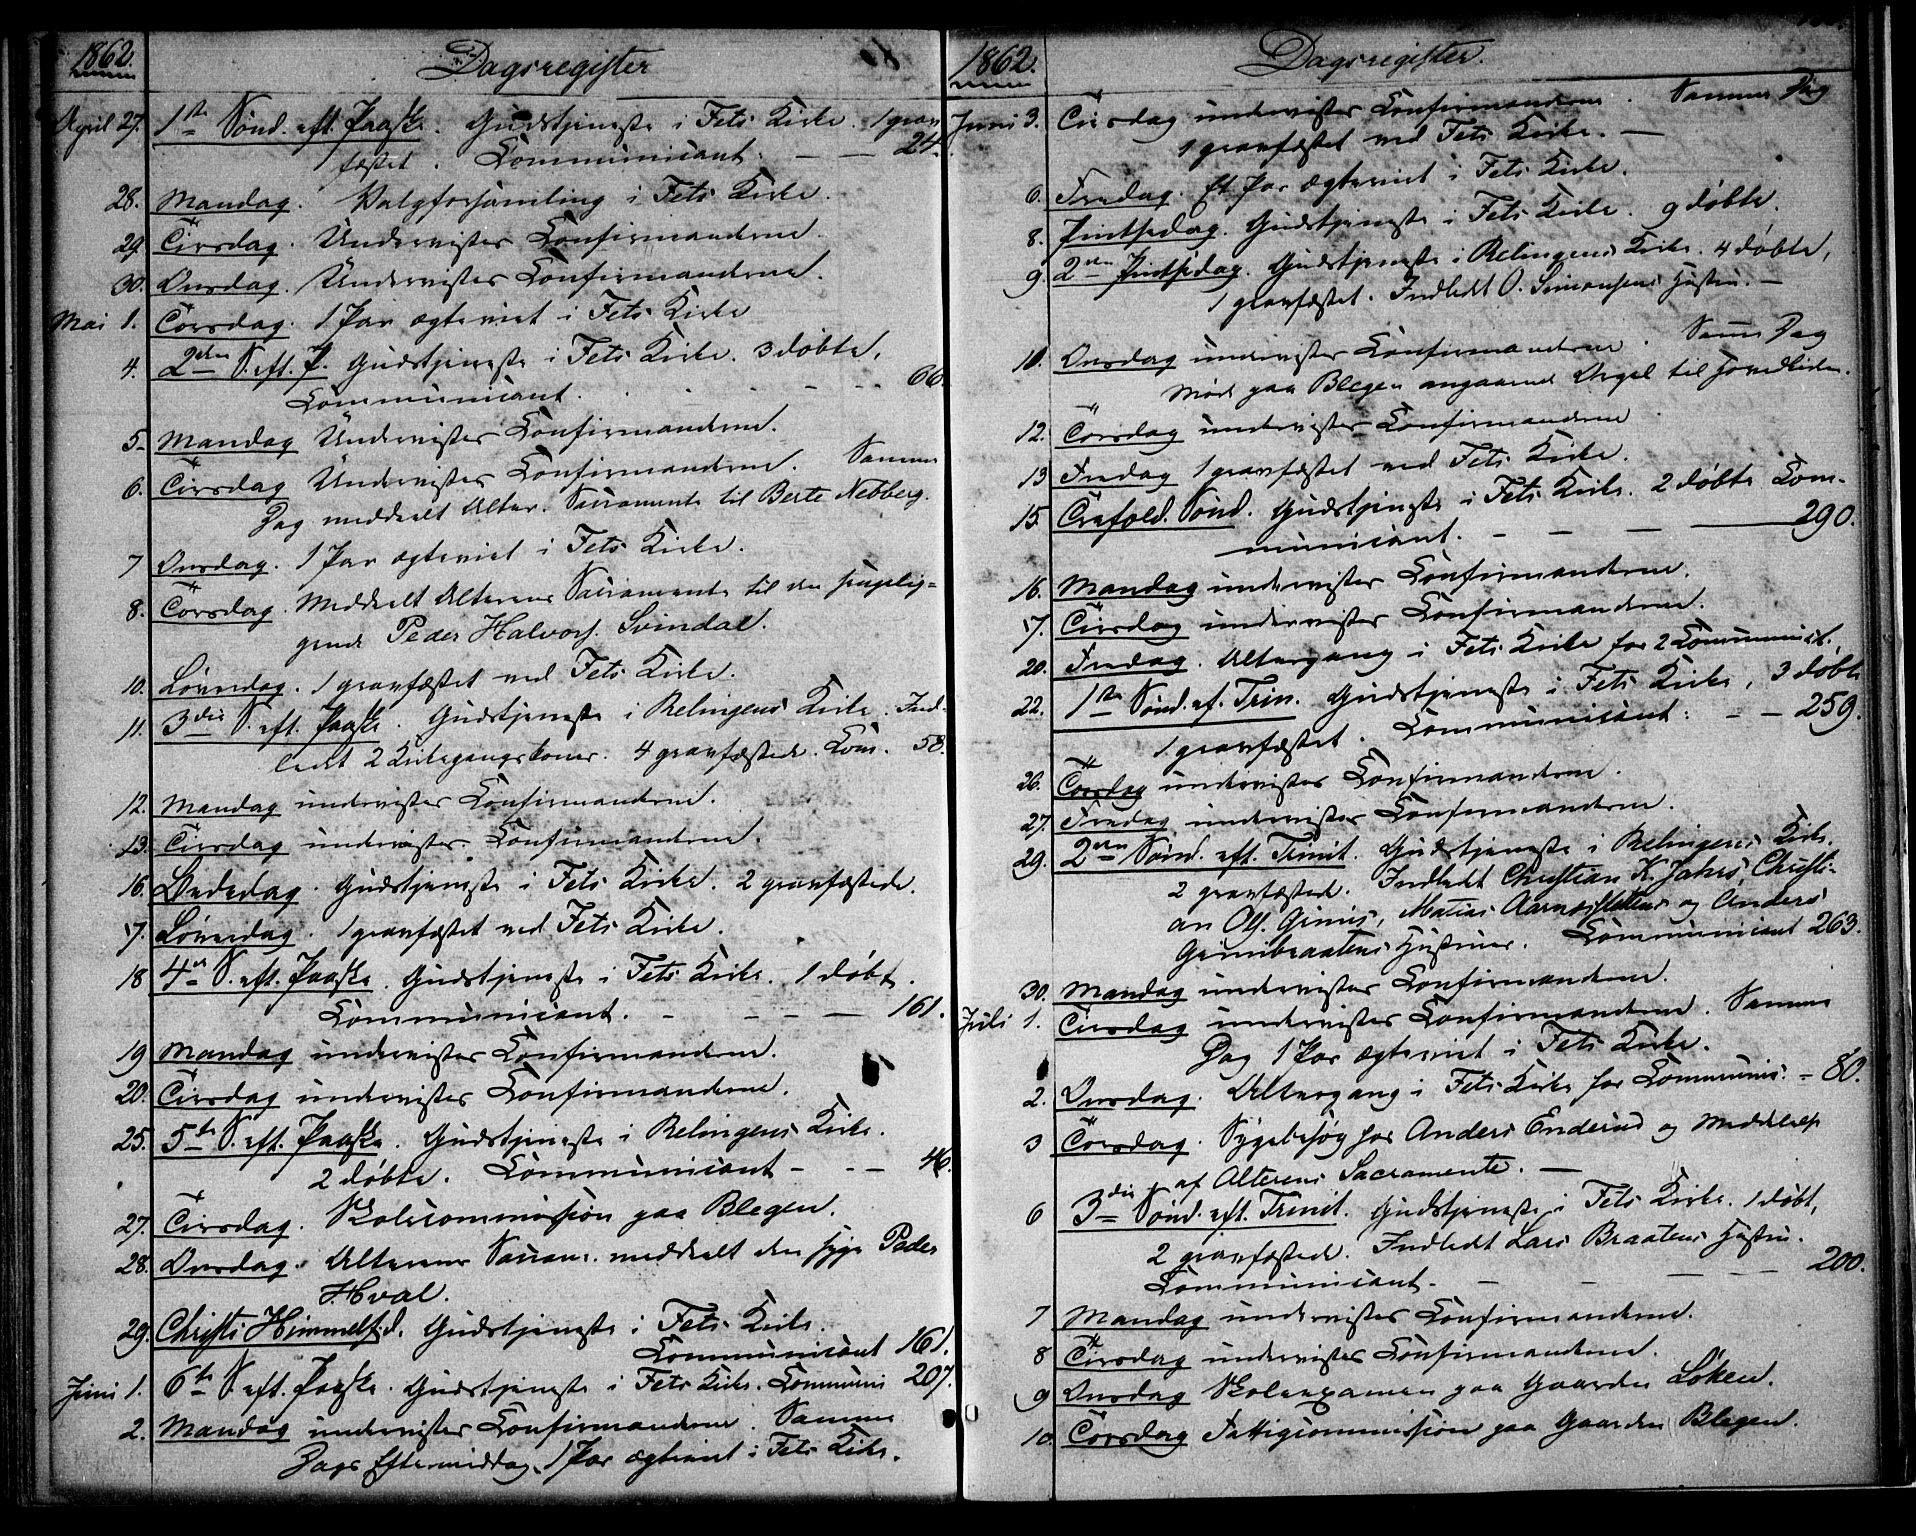 1862.
Dagsregister
April 27. 1ste Sönd. eft. Paaske. Gudstjeneste i Fets Kirke. 1 grav
fæstet. Communicant. — — 24.
28. Mandag. Valgforsamling i Fets Kirke.
29. Tirsdag. Undervister Confirmanderne.
30. Onsdag. Undervister Confirmanderne.
Mai 1. Torsdag. 1 Par ægteviet i Fets Kirke
4. 2den S. eft. P. Gudstjeneste i Fets Kirke. 3 döbte.
Communicant. - - - 66.
5. Mandag Undervister Confirmanderne.
6. Tirsdag Undervister Confirmanderne. Samme
Dag meddeelt Alter. Sacramente til Berte Nebberg.
7 Onsdag. 1 Par ægteviet i Fets Kirke.
8. Torsdag. Meddeelt Alterens Sacramente til den sengelig-
gende Peder Halvors. Svindal.
10. Löverdag. 1 gravfæstet ved Fets Kirke.
11. 3die S. eft. Paaske. Gudstjeneste i Relingens Kirke. Ind-
ledt 2 Kirkegangskoner. 4 gravfæstede. Com. 58.
12. Mandag undervister Confirmanderne.
13. Tirsdag undervister Confirmanderne.
16. Bededag. Gudstjeneste i Fets Kirke. 2 gravfæstede.
17. Löverdag. 1 gravfæstet ved Fets Kirke.
18 4de S. eft. Paaske. Gudstjeneste i Fets Kirke. 1 döbt.
Communicant. - - - — 161.
19 Mandag undervister Confirmanderne.
20. Tirsdag undervister Confirmanderne.
25. 5te S. eft. Paaske. Gudstjeneste i Relingens Kirke.
2 döbte. Communicant - - — 46.
27. Tirsdag. Skolecommission paa Blegen.
28. Onsdag. Alterens Sacram. meddeelt den syge Peder
Hval.
29. Christi Himmelf.d. Gudstjeneste i Fets Kirke.
Communicant 161.
Juni 1. 6te S. eft. Paaske. Gudstjeneste i Fets Kirke. Communi 207.
2. Mandag undervister Confirmanderne. Samme
Dags Eftermiddag 1 Par ægteviet i Fets Kirke.
1862.
Dagsregister.
Juni 3. Tirsdag undervister Confirmanderne. Samme Dag
1 gravfæstet ved Fets Kirke. —
6. Fredag. Et Par ægteviet i Fets Kirke.
8. Pintsedag. Gudstjeneste i Fets Kirke. 9 döbte.
9. 2den Pintsedag. Gudstjeneste i Relingens Kirke. 4 döbte,
1 gravfæstet. Indledt O. Simonsens Hustru. —
10. Onsdag undervister Confirmanderne. Samme Dag
Möde paa Blegen angaaende Orgel til Hovedkirken.
12. Torsdag undervister Confirmanderne
13 Fredag 1 gravfæstet ved Fets Kirke.
15. Trefold. Sönd. Gudstjeneste i Fets Kirke. 2 döbte Com-
municant. - - — — 290.
16. Mandag undervister Confirmanderne.
17. Tirsdag undervister Confirmanderne.
20. Fredag. Altergang i Fets Kirke for 2 Communic.
22. 1ste Sönd. ef. Trin. Gudstjeneste i Fets Kirke, 3 döbte
1 gravfæstet. Communicant: - — 259.
26. Torsdag undervister Confirmanderne.
27. Fredag undervister Confirmanderne.
29. 2den Sönd. eft. Trinit. Gudstjeneste i Relingens Kirke.
2 gravfæstede. Indledt Christian K. Jahrs, Christi-
an Ols. Gimis, Matias Aarnæsflatens og Anders
Gimibraatens Hustruer. Communicant 263.
30. Mandag undervister Confirmanderne.
Juli 1. Tirsdag undervister Confirmanderne. Samme
Dag 1 Par ægteviet i Fets Kirke.
2. Onsdag. Altergang i Fets Kirke for Communic. - 80.
3 Torsdag. Sygebesøg hos Anders Enderud og Meddelelse
af Alterens Sacramente. —
6 3die Sönd. eft. Trinit. Gudstjeneste i Fets Kirke. 1 döbt,
2 gravfæstede. Indledt Lars Braatens Hustru.
Communicant. - - — — 200.
7 Mandag undervister Confirmanderne.
8 Tirsdag undervister Confirmanderne.
9 Onsdag Skoleexamen paa Gaarden Löken.
10. Torsdag Fattigcommission paa Gaarden Blegen.